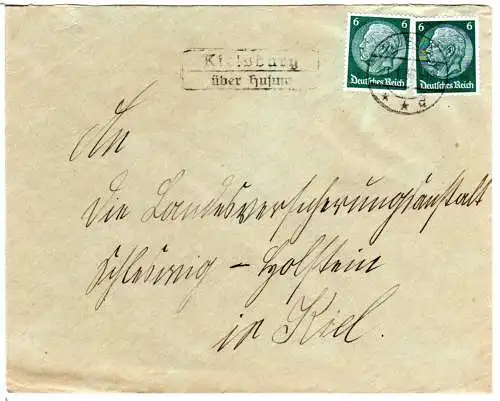 6 6 6 6
Deutsches Reich Deutsches Reich
über Husum
* * d
An
die Landesversicherungsanstalt
Schleswig - Holstein
in Kiel.